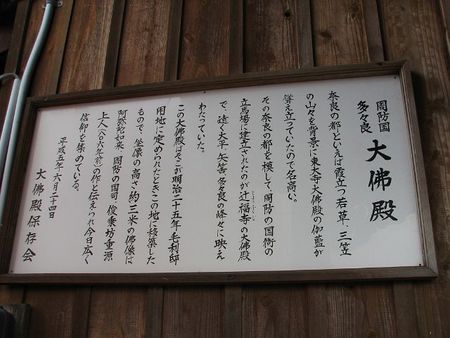 周防国
多々良
大佛殿
奈良の都といえば霞立つ若草、三笠
の山々を背景に東大寺大佛殿の伽藍が
聳え立っていたので名高い。
その奈良の都を模して、周防の国衙の
立馬場に建立されたのが辻福寺の大佛殿
で、遠く大平、矢筈、多々良の峰々に映え
わたっていた。
この大佛殿はそこが明治二十五年毛利邸
用地に定められたときこの地に移築した
もので、坐像の高さ約三米の佛像は
阿弥陀如来、周防の国司、俊乗坊重源
上人の作と伝えられ今日広く
信仰を集めている。
平成五年六月二十四日
大佛殿保存会